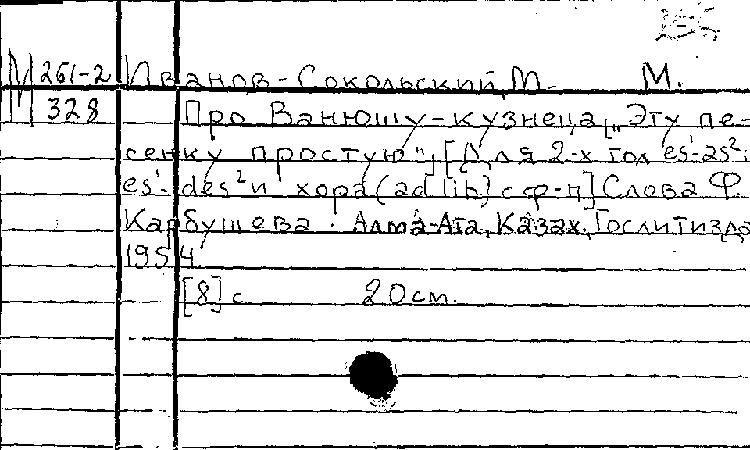 М 261-2 Иванов-Сокольский, М. М.
328 Про Ванюшу-кузнеца. [„Эту пе-
сенку простую“]. [Для 2-х гол. es¹-as²;
es¹-des² и хора (ad lib) с ф-п] Слова Ф.
Карбушева. Алма-Ата, Казах. Гослитиздат
1954
[8] с. 20 см.